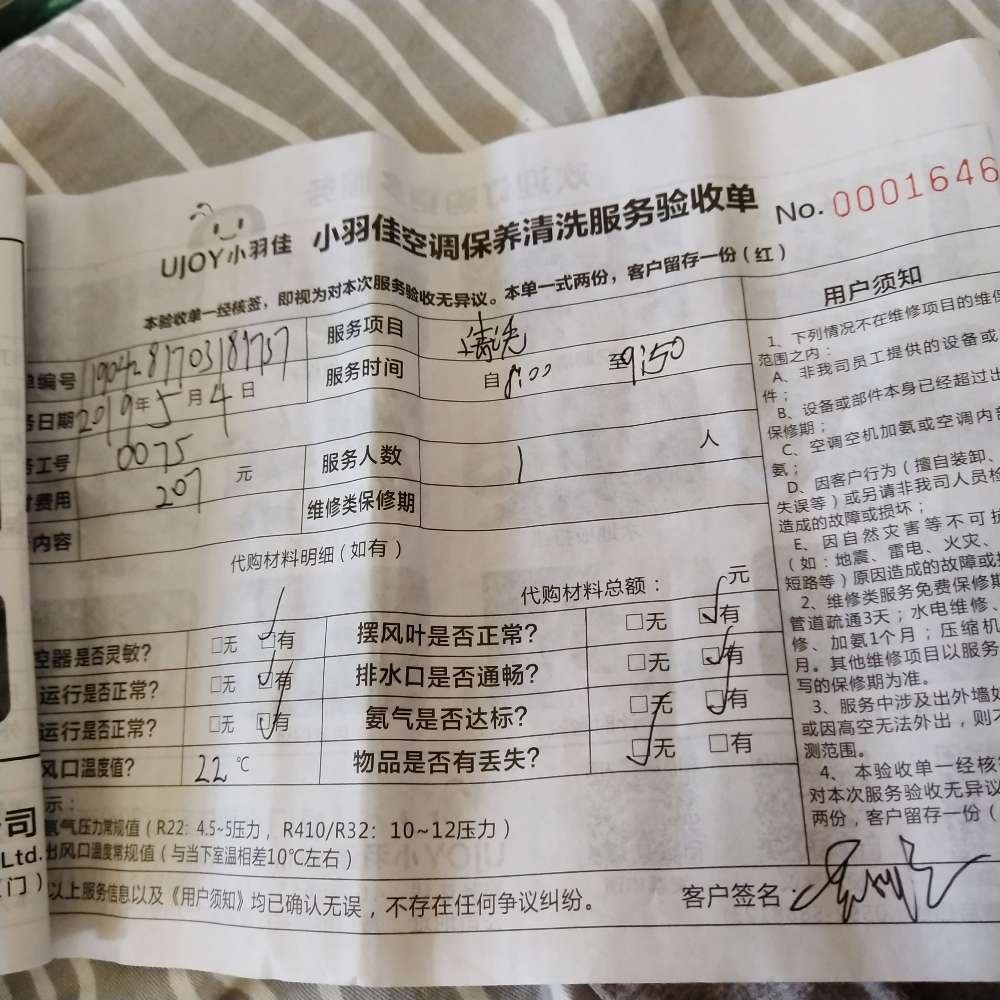 UJOY小羽佳 小羽佳空调保养清洗服务验收单 No. 0001646
本验收单一经核签，即视为对本次服务验收无异议。本单一式两份，客户留存一份（红）
单编号 服务项目 清洗
务日期 2019年5月4日 服务时间 自8:00 至9:50
务工号 0075 服务人数 1 人
付费用 207 元 维修类保修期
内容
代购材料明细（如有）
代购材料总额： 元
控器是否灵敏? □无 □有 摆风叶是否正常? □无 □有
运行是否正常? □无 □有 排水口是否通畅? □无 □有
运行是否正常? □无 □有 氨气是否达标? □无 □有
风口温度值? 22 ℃ 物品是否有丢失? □无 □有
示：
氨气压力常规值（R22：4.5~5压力，R410/R32：10~12压力）
出风口温度常规值（与当下室温相差10℃左右）
以上服务信息以及《用户须知》均已确认无误，不存在任何争议纠纷。 客户签名：
用户须知
1、下列情况不在维修项目的维保
范围之内：
A、非我司员工提供的设备或
件；
B、设备或部件本身已经超过出
保修期；
C、空调空机加氨或空调内部
氨；
D、因客户行为（擅自装卸、
失误等）或另请非我司人员检
造成的故障或损坏；
E、因自然灾害等不可抗
（如：地震、雷电、火灾、
短路等）原因造成的故障或
2、维修类服务免费保修期
管道疏通3天；水电维修、
修、加氨1个月；压缩机
月。其他维修项目以服务
写的保修期为准。
3、服务中涉及出外墙如
或因高空无法外出，则不
测范围。
4、本验收单一经核
对本次服务验收无异议
两份，客户留存一份（
司
Ltd.
门）